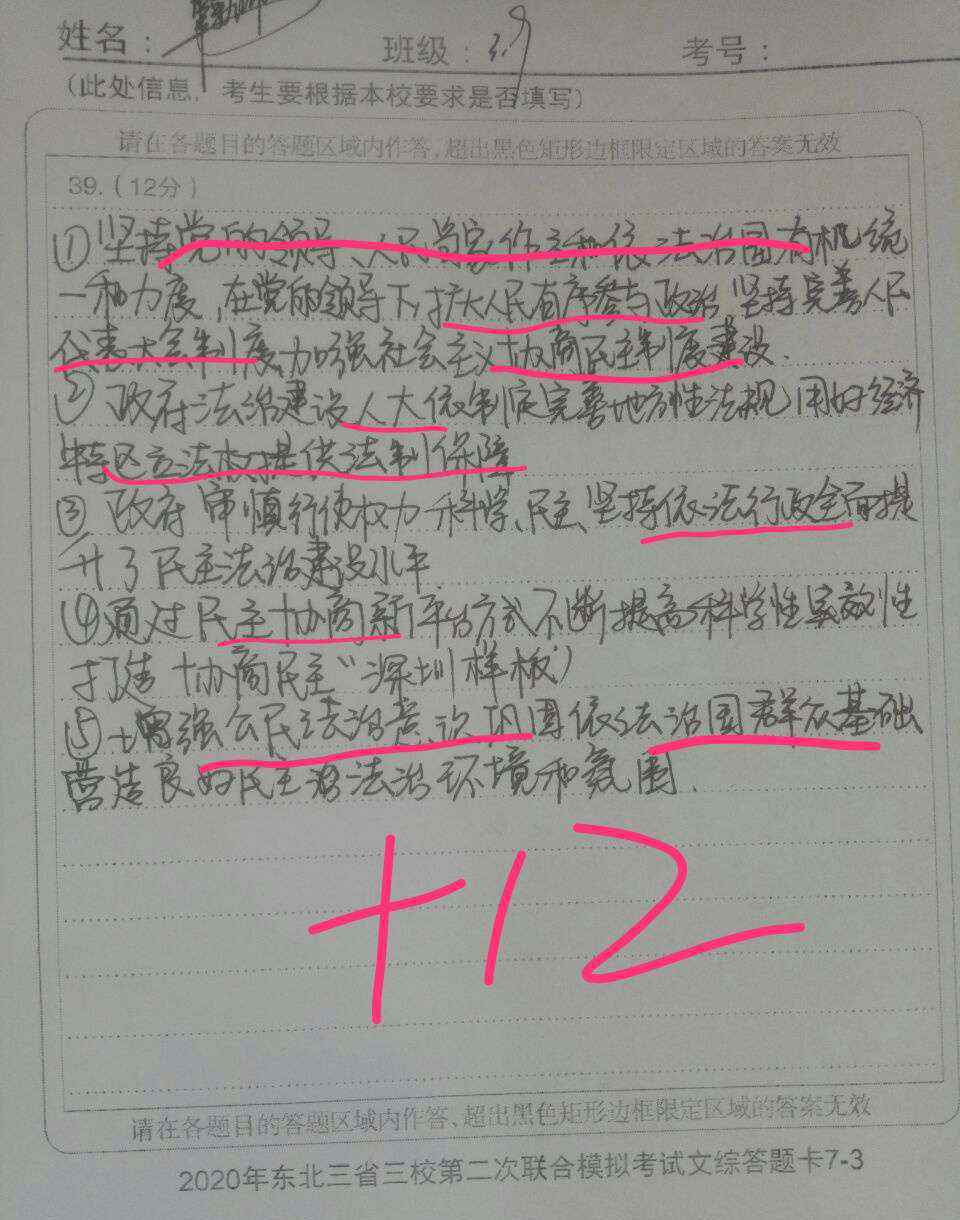 姓名：
班级：3.9
考号：
（此处信息，考生要根据本校要求是否填写）
请在各题目的答题区域内作答，超出黑色矩形边框限定区域的答案无效
39.（12分）
①坚持党的领导、人民当家作主和依法治国有机统
一和力度，在党的领导下，扩大人民有序参与政治 坚持完善人民
代表大会制度，加强社会主义协商民主制度建设.
②政府法治建设人大依制定完善地方性法规，用好经济
特区立法权提供法制保障
③政府审慎行使权力科学、民主、坚持依法行政全面提
升了民主法治建设水平
④通过民主协商新平台方式不断提高科学性实效性
打造协商民主“深圳样板”
⑤增强公民主法治意识巩固依法治国群众基础
营造良好民主政治法治环境和氛围.
+12
请在各题目的答题区域内作答、超出黑色矩形边框限定区域的答案无效
2020年东北三省三校第二次联合模拟考试文综答题卡7-3